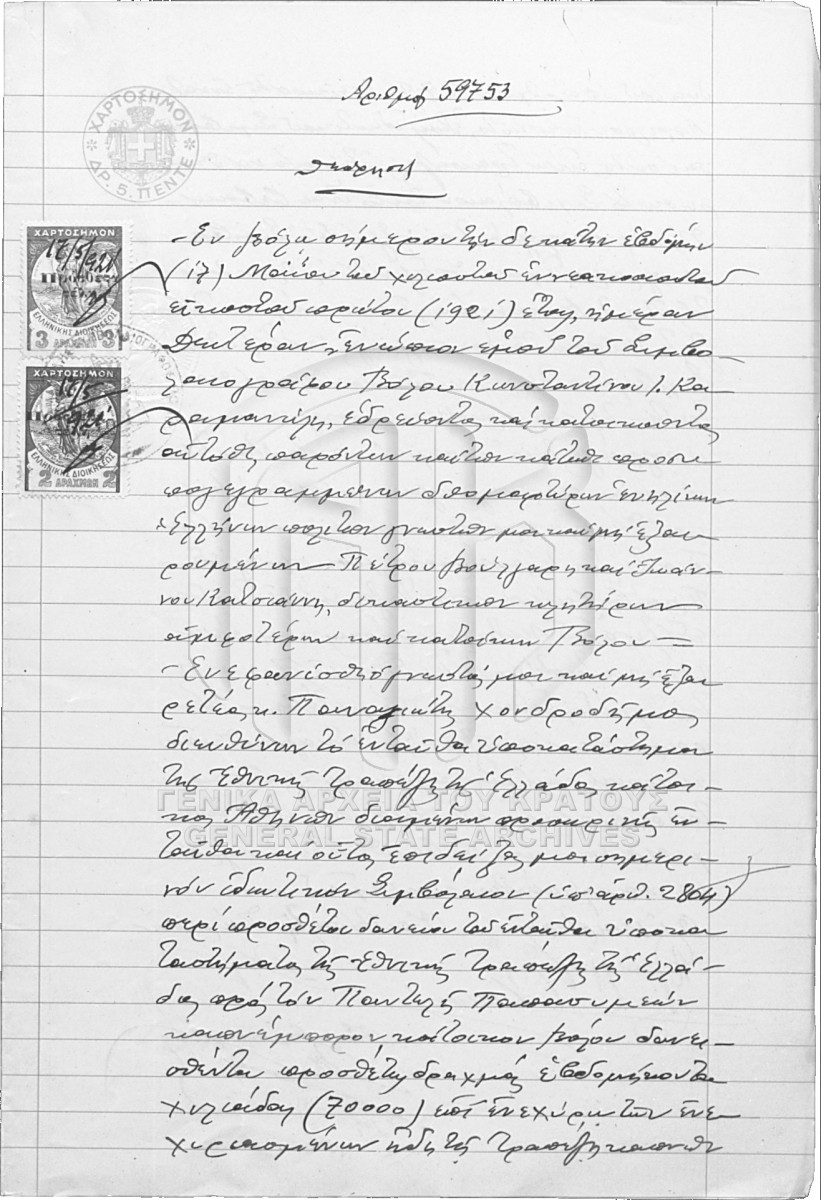 Αριθμός 59753
Θεώρησις
ΧΑΡΤΟΣΗΜΟΝ
ΔΡ. 5. ΠΕΝΤΕ
ΧΑΡΤΟΣΗΜΟΝ
17/5/921
ΕΛΛΗΝΙΚΗΣ ΔΙΟΙΚΗΣΕΩΣ
3 ΔΡΑΧΜΑΙ 3
ΧΑΡΤΟΣΗΜΟΝ
17/5
921
ΕΛΛΗΝΙΚΗΣ ΔΙΟΙΚΗΣΕΩΣ
2 ΔΡΑΧΜΩΝ 2
-Εν Βόλω σήμερον την δεκάτην εβδόμην
(17) Μαΐου του χιλιοστού εννεακοσιοστού
εικοστού πρώτου (1921) έτους, ημέραν
Δευτέραν, ενώπιον εμού του Συμβο-
λαιογράφου Βόλου Κωνσταντίνου Ι. Κα-
ραμανίλη, εδρεύοντος και κατοικούντος
αυτόθι, παρόντων και των κάτωθι προσυ-
πογεγραμμένων δύο μαρτύρων ενηλίκων
Ελλήνων πολιτών γνωστών μοι και μη εξαι-
ρουμένων Πέτρου Βούλγαρη και Ιωάν-
νου Κατσιάννη, δικαστικών κλητήρων
αμφοτέρων και κατοίκων Βόλου=
-Ενεφανίσθη ο γνωστός μοι και μη εξαι-
ρετέος κ. Παναγιώτης Χονδροδήμος
διευθύνων το ενταύθα υποκατάστημα
της Εθνικής Τραπέζης της Ελλάδος κάτοι-
κος Αθηνών διαμένων προσωρινώς εν-
ταύθα και ούτος επιδείξας μοι σημερι-
νόν ιδιωτικόν Συμβόλαιον (υπ' αριθ. 2864)
περί προσθέτου δανείου του ενταύθα υποκα-
ταστήματος της Εθνικής Τραπέζης της Ελλά-
δος προς τον Παντελή Παπασυμεών
καπνέμπορον κάτοικον Βόλου δανει-
σθέντα προσθέτως δραχμάς εβδομήκοντα
χιλιάδας (70000) επί ενεχύρω των ενε-
χυριασμένων ήδη τη Τραπέζη καπνών
ΓΕΝΙΚΑ ΑΡΧΕΙΑ ΤΟΥ ΚΡΑΤΟΥΣ
GENERAL STATE ARCHIVES